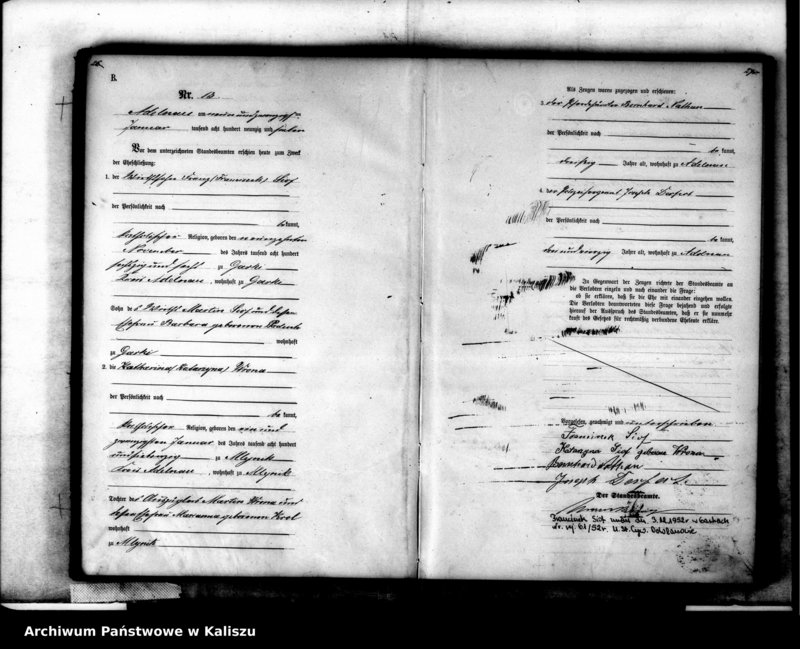 B.
Nr. 13.
Adelnau am neunundzwanzigsten
Januar tausend acht hundert neunzig und sieben
Vor dem unterzeichneten Standesbeamten erschien heute zum Zweck
der Eheschließung:
1. der
der Persönlichkeit nach
kannt,
katholischer Religion, geboren den neunzehnten
November des Jahres tausend acht hundert
sechszig und sechs zu Garki
Kreis Adelnau, wohnhaft zu Garki
Sohn des Wirths Martin und dessen
Ehefrau Barbara geborenen
wohnhaft
zu Garki
2. die Katharina (Katarzyna) Wrona
der Persönlichkeit nach
be kannt,
katholischer Religion, geboren den ein und
zwanzigsten Januar des Jahres tausend acht hundert
und siebenzig zu Mlynik
Kreis Adelnau, wohnhaft zu Mlynik
Tochter des Auszüglers Martin Wrona und
dessen Ehefrau Marianna geborenen Krol
wohnhaft
zu Mlynik
Als Zeugen waren zugezogen und erschienen:
3. der Pferdehändler Bernhard Nathan
der Persönlichkeit nach
be kannt,
Jahre alt, wohnhaft zu Adelnau
4. der Polizeisergeant Joseph
der Persönlichkeit nach
be kannt,
Jahre alt, wohnhaft zu Adelnau
In Gegenwart der Zeugen richtete der Standesbeamte an
die Verlobten einzeln und nach einander die Frage:
ob sie erklären, daß sie die Ehe mit einander eingehen wollen.
Die Verlobten beantworteten diese Frage bejahend und erfolgte
hierauf der Ausspruch des Standesbeamten, daß er sie nunmehr
kraft des Gesetzes für rechtmäßig verbundene Eheleute erkläre.
Vorgelesen, genehmigt und unterschrieben
Katarzyna geborene Wrona
Bernhard Nathan
Joseph
Der Standesbeamte.
Franciszek zmarł dn. 3.12.1952r w Garkach
Nr. 61/52r. U.St.Cyw.
Archiwum Państwowe w Kaliszu